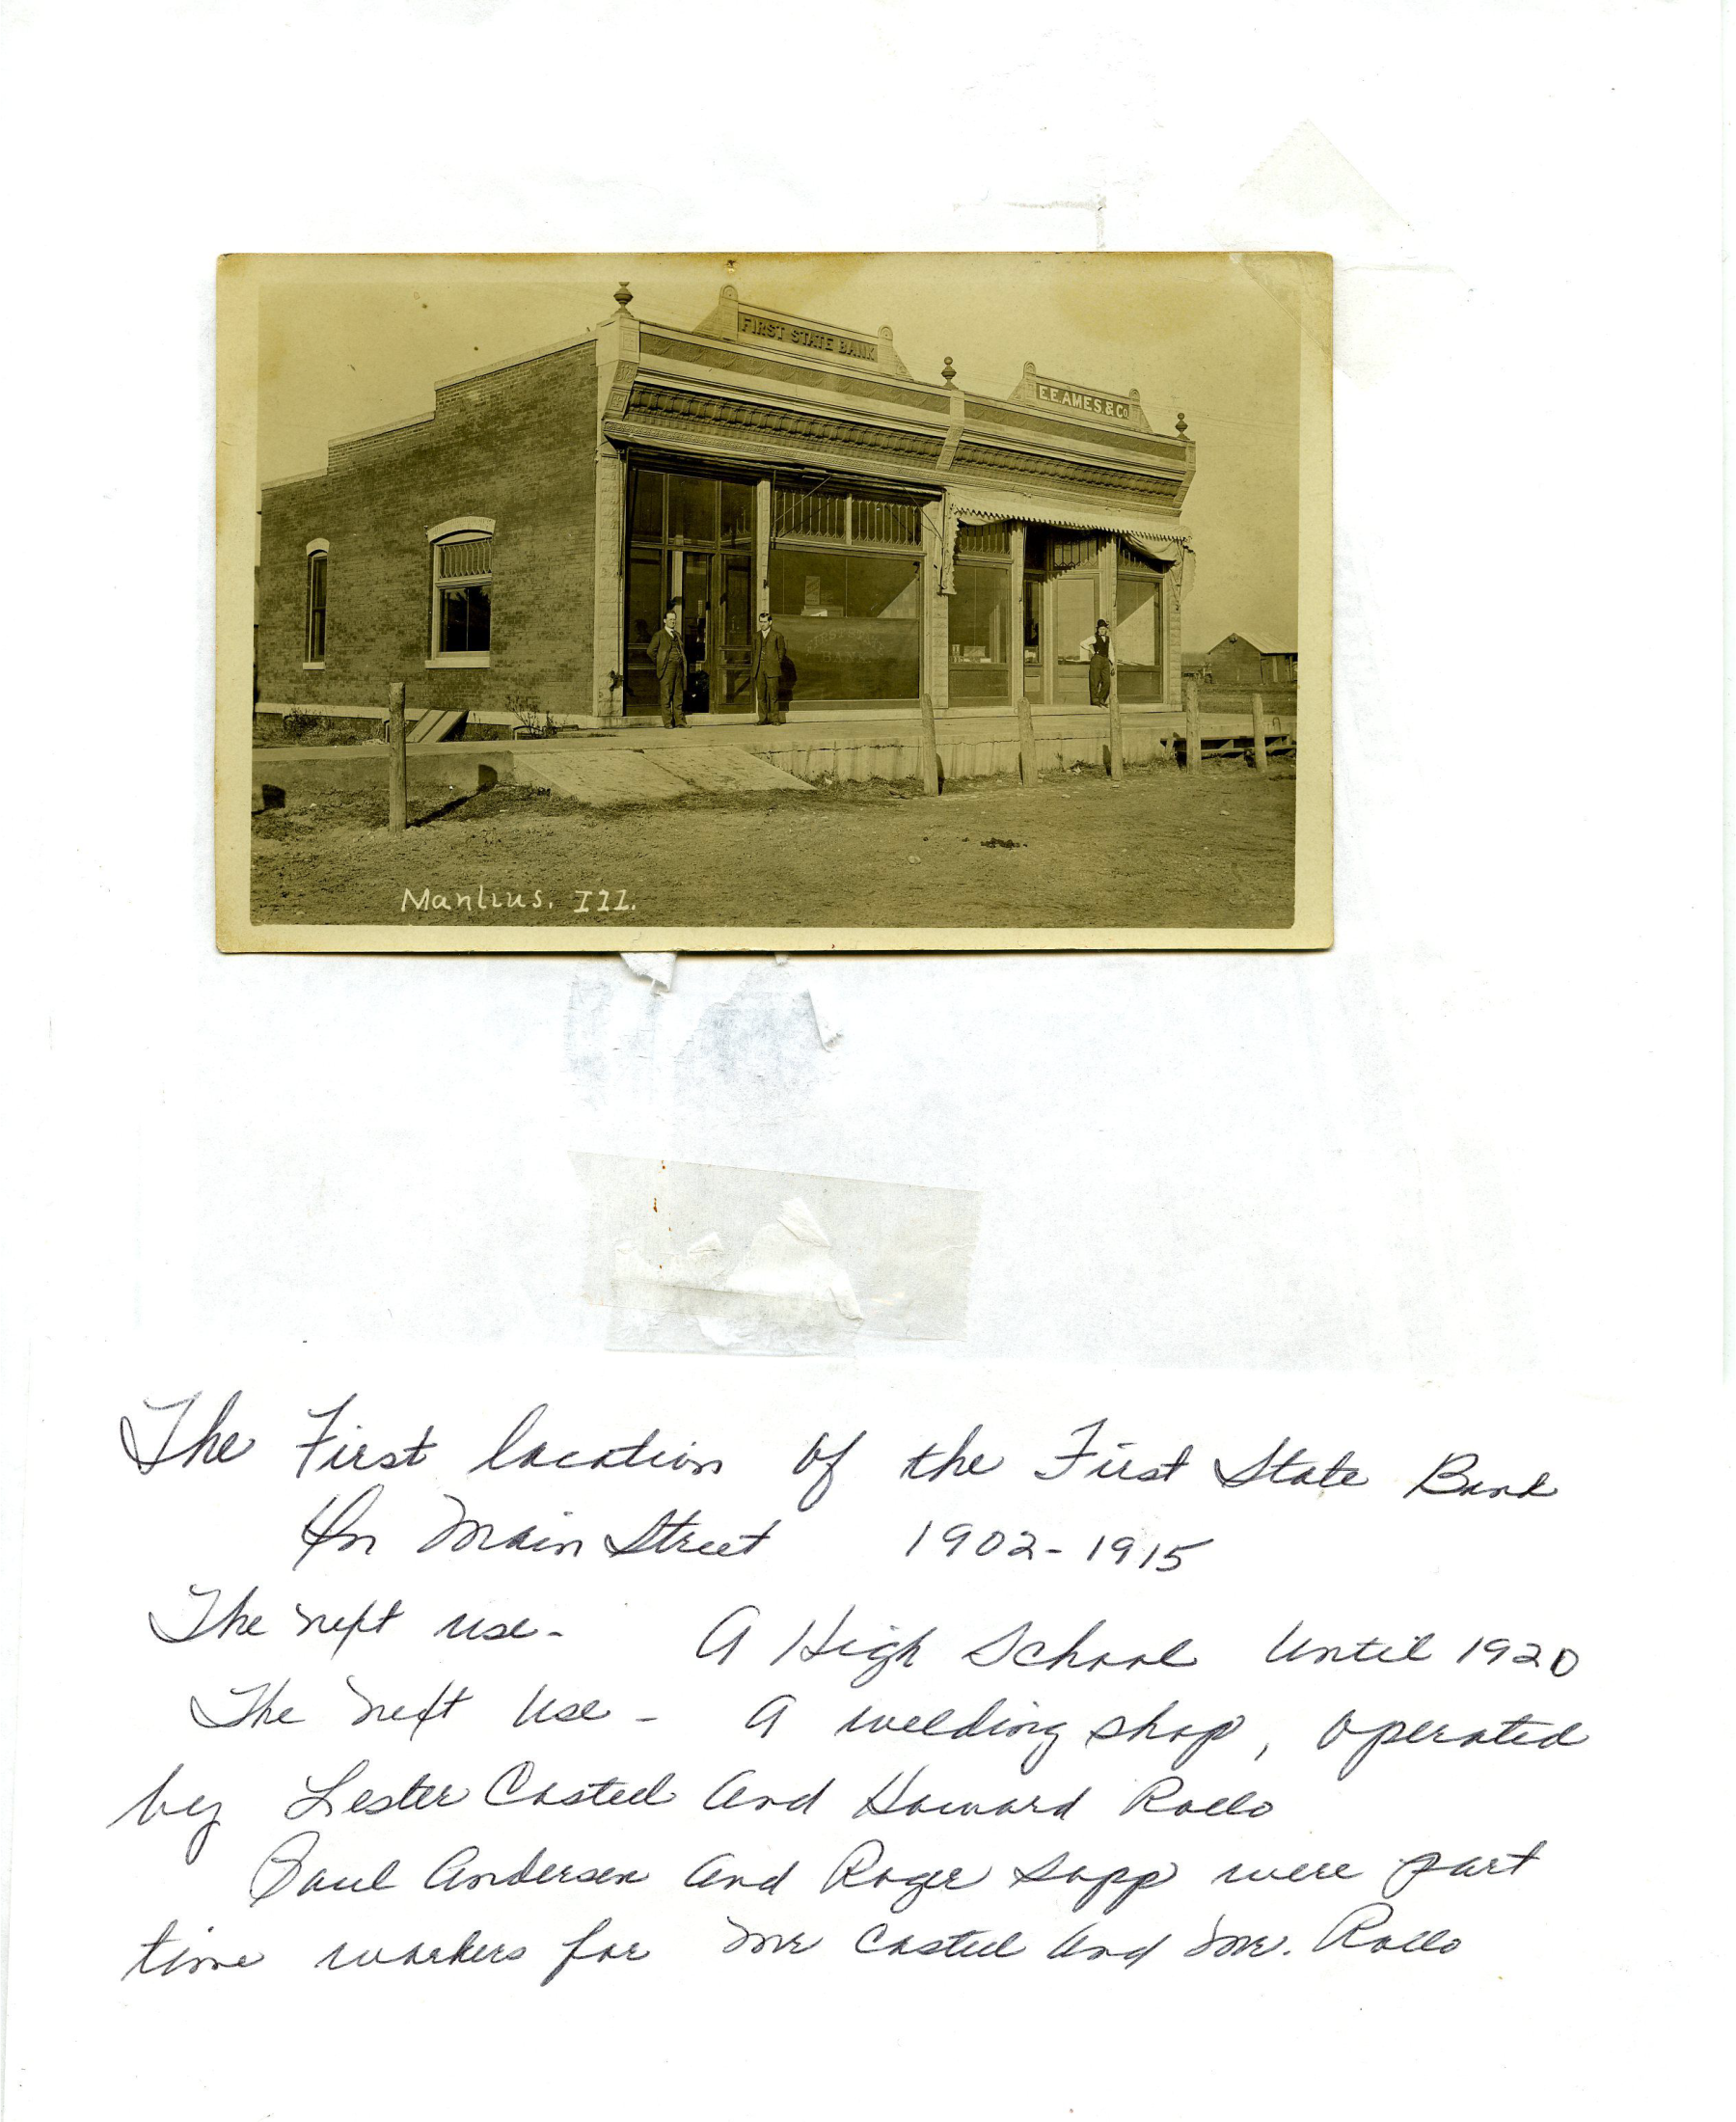 FIRST STATE BANK
E.E. AMES. & Co
Manlius. Ill.
The First location of the First State Bank
On Main Street 1902-1915
The next use - A High School Until 1920
The next Use - A welding shop, operated
by Lester Casteel and Howard Rollo
Paul Andersen and Roger Sapp were part
time workers for Mr Casteel and Mr. Rollo